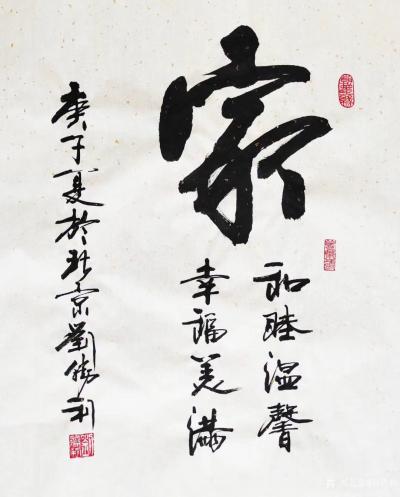 家
和睦温馨
幸福美满
庚子夏於北京劉勝利